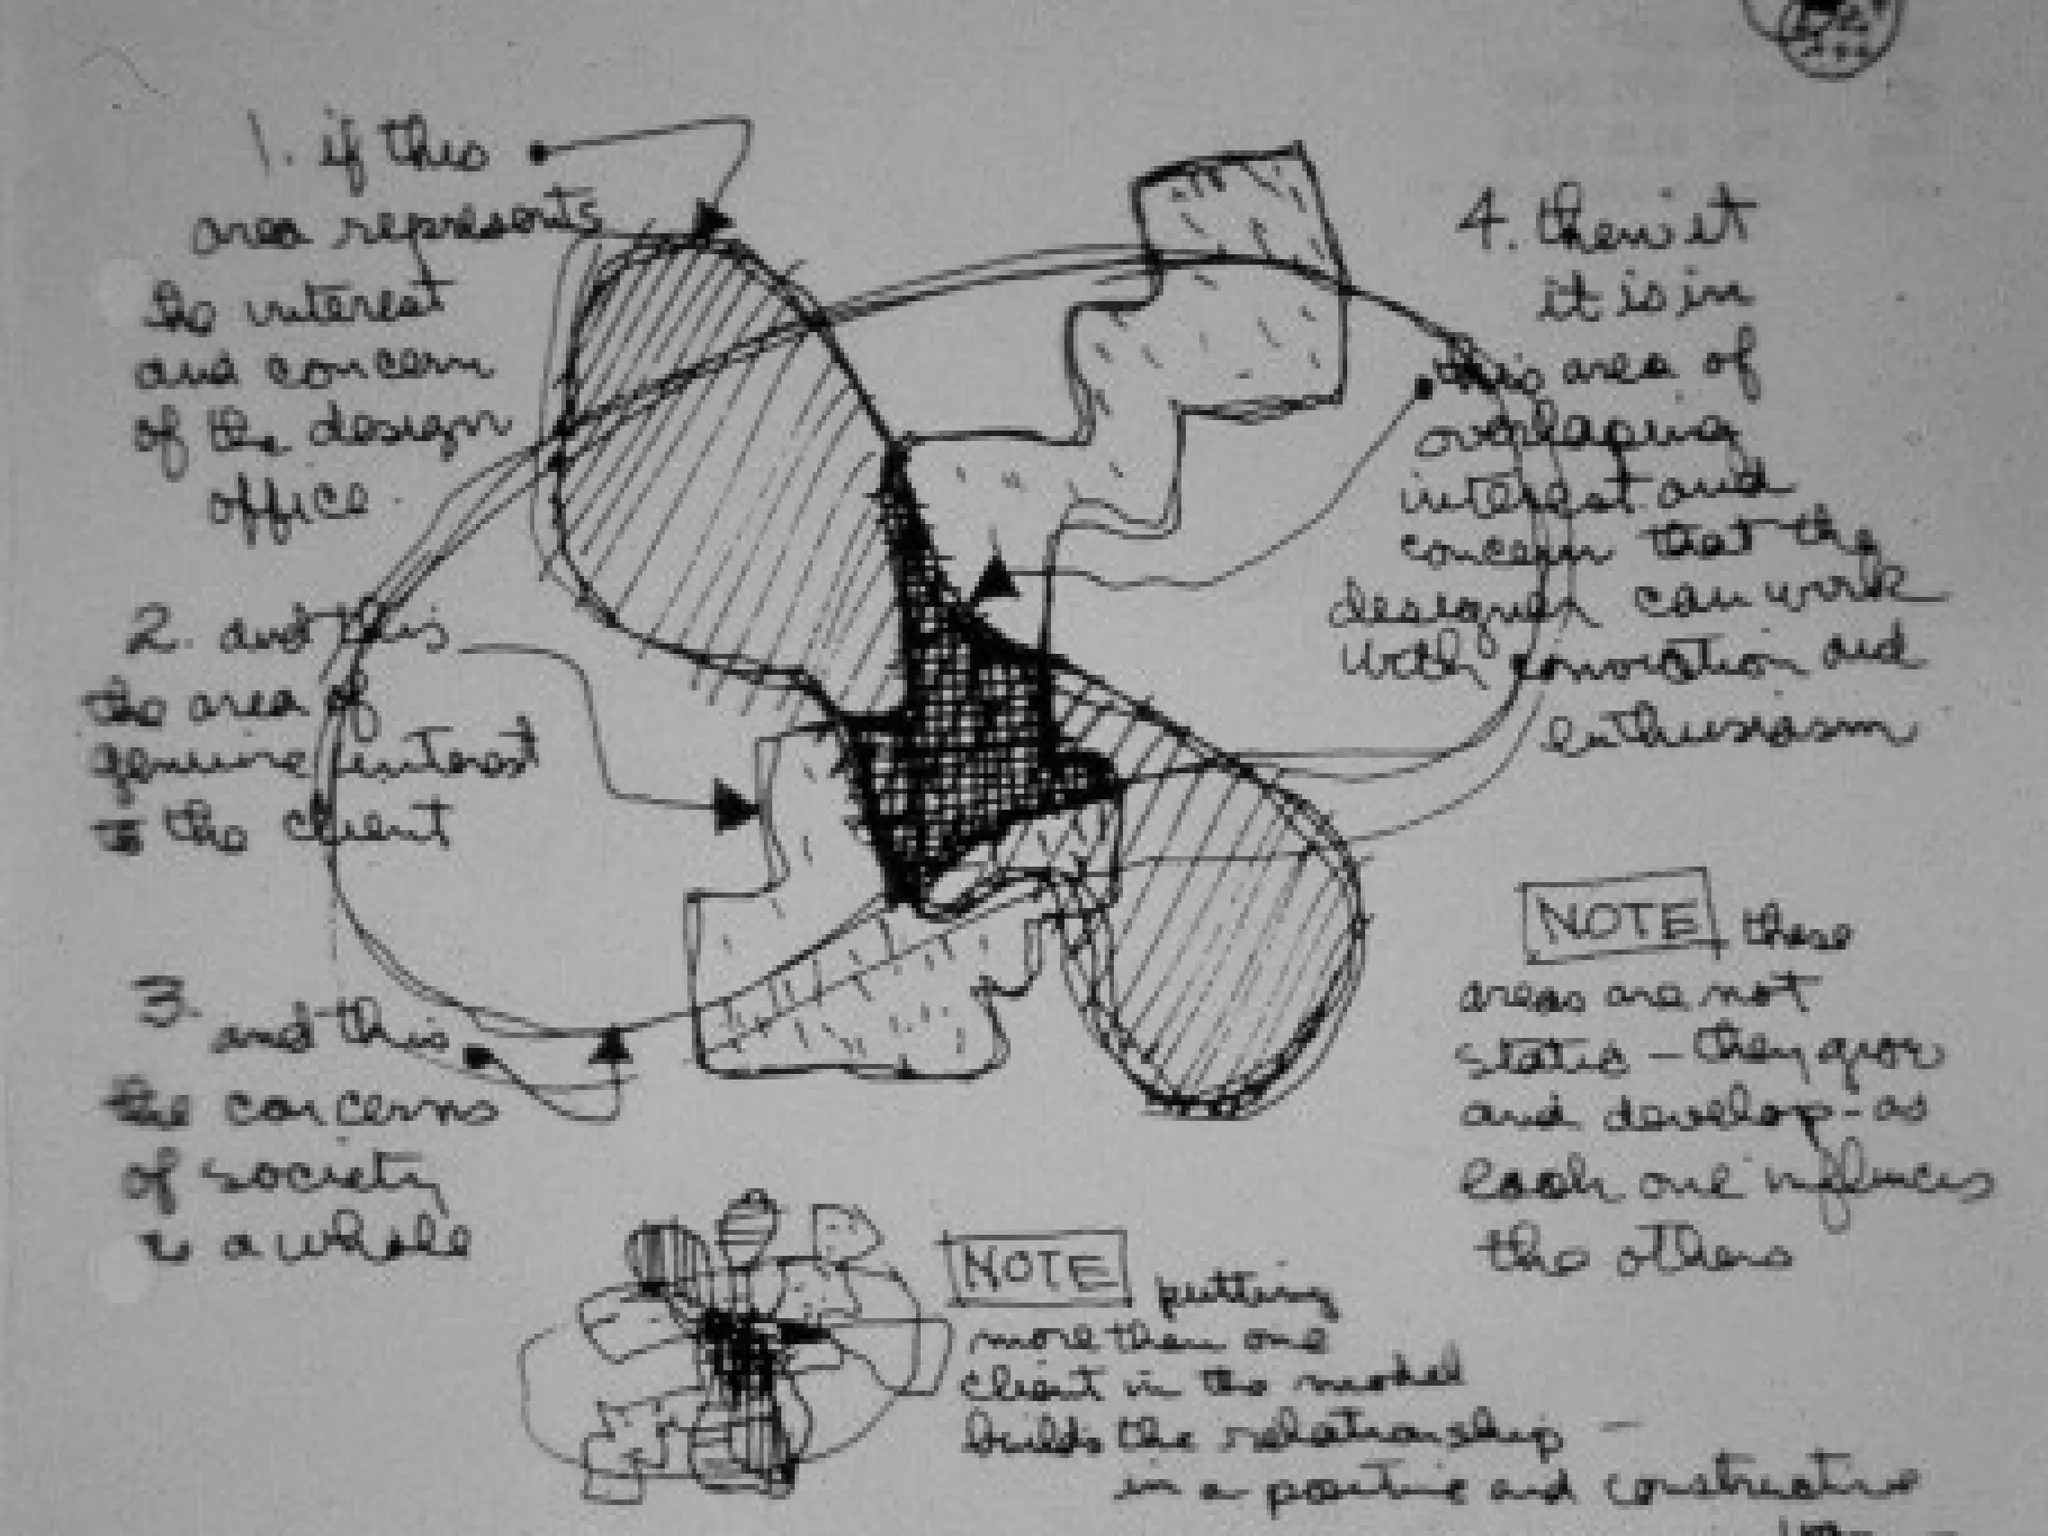 1. if this
area represents
the interest
and concern
of the design
office.
2. and this
the area of
genuine interest
to the client
3. and this
the concerns
of society
as a whole
4. then it
it is in
this area of
overlaping
interest and
concern that the
designer can work
with conviction and
enthusiasm
NOTE these
areas are not
static - they grow
and develop - as
each one influences
the others
NOTE putting
more than one
client in the model
builds the relationship -
in a positive and constructive